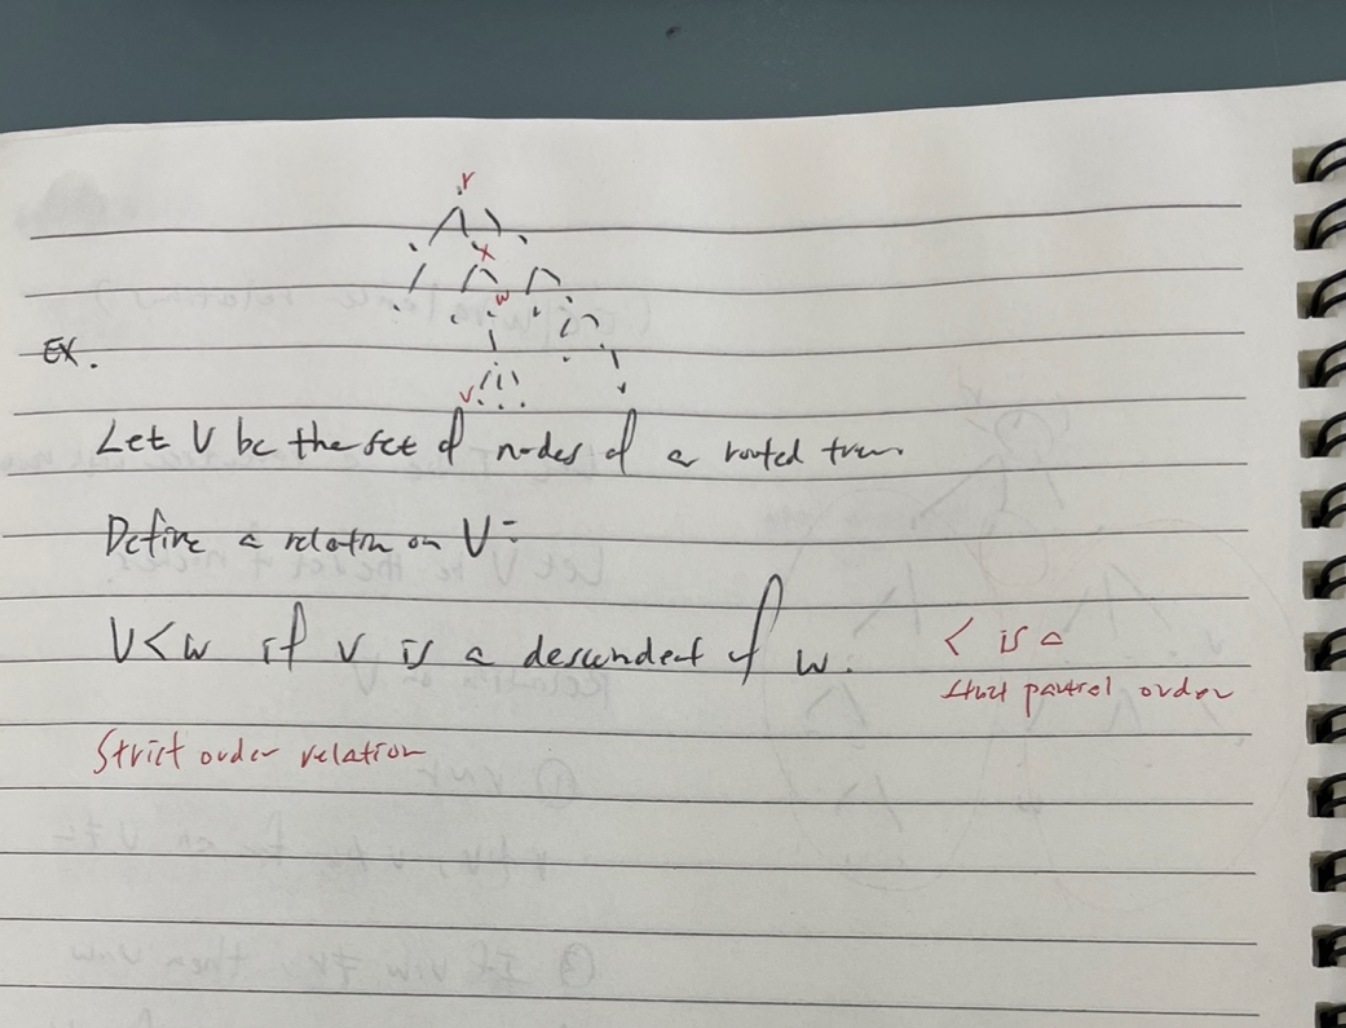 r
x
w
EX.
v
Let V be the set of nodes of a rooted tree
Define a relation on V:
V<w if v is a descendent of w.
< is a
strict partial order
Strict order relation